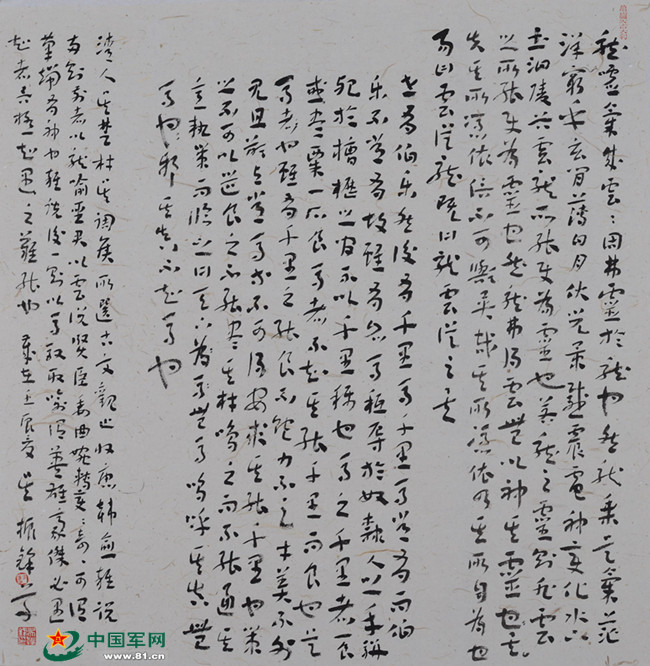 龍噓氣成雲雲固弗靈於龍也然龍乘是氣茫
洋窮乎玄間薄日月伏光景感震電神變化水下
土汩陵谷雲龍所能使為靈也若龍之靈則非雲
之所能使為靈也然龍弗得雲無以神其靈也矣
失其所憑依信不可歟異哉其所憑依乃其所自為也
易曰雲從龍既曰龍雲從之矣
世有伯樂然後有千里馬千里馬常有而伯
樂不常有故雖有名馬祇辱於奴隸人之手駢
死於槽櫪之間不以千里稱也馬之千里者一食
或盡粟一石食馬者不知其能千里而食也是
馬者也雖有千里之能食不飽力不足才美不外
見且欲與常馬等不可得安求其能千里也策
之不以道食之不能盡其材鳴之而不能通其
意執策而臨之曰天下無馬嗚呼其真無
馬也邪其真不知馬也
清人吳楚材吳調侯所選古文觀止收唐韓愈雜說
兩則前者以龍喻聖君以雲說賢臣委曲宛轉變變奇奇可謂
筆端有神也雜說後一則以馬取喻謂英雄豪傑必遇
知者 知遇之難能也 歲在壬辰夏 吳振鋒書
中国军网
www.81.cn